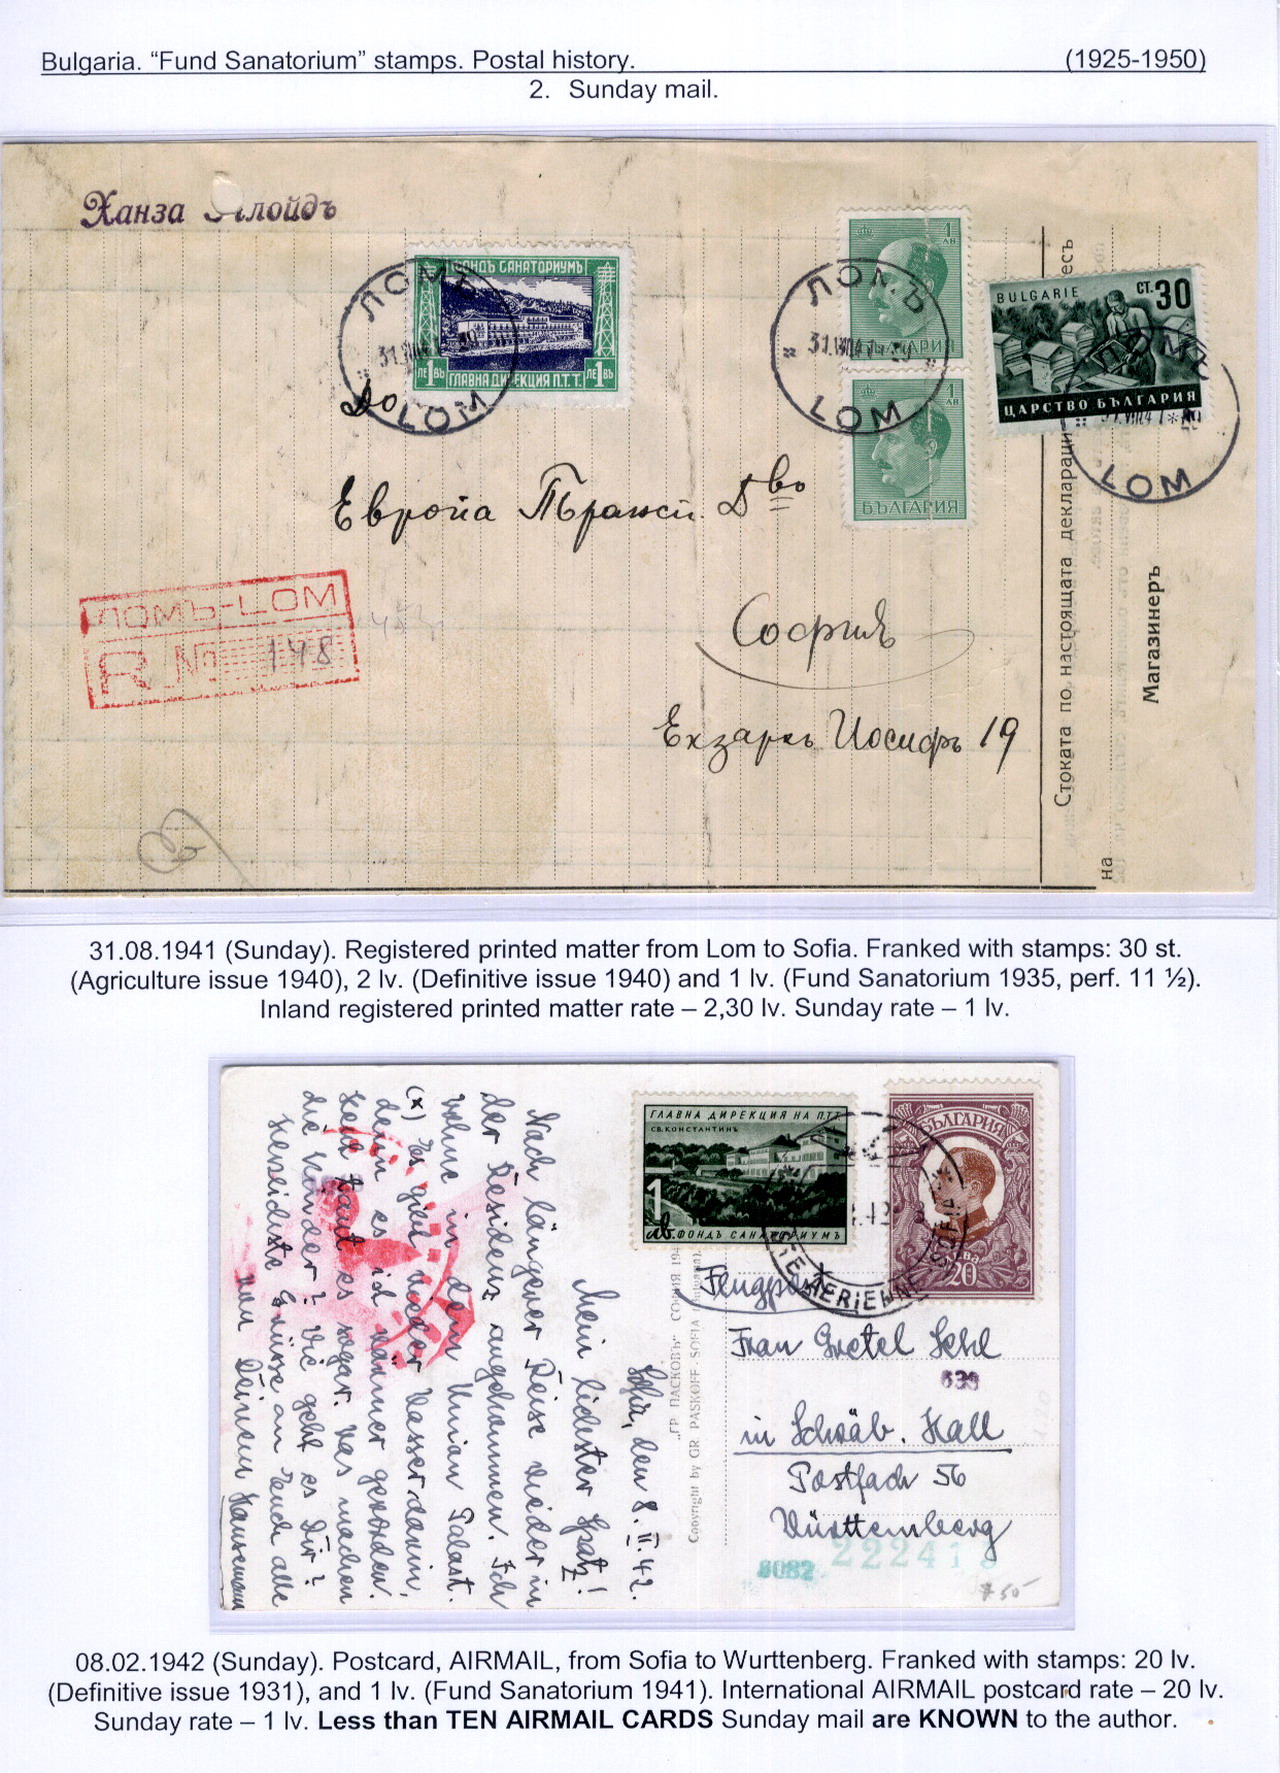 Bulgaria. “Fund Sanatorium” stamps. Postal history. (1925-1950)
2. Sunday mail.
Ханза Ллойдъ
ФОНДЪ САНАТОРИУМЪ
ЛЕ 1 ВЪ ЛЕ 1 ВЪ
ГЛАВНА ДИРЕКЦИЯ П.Т.Т.
ЛОМЪ
LOM
1 ЛВ
БЪЛГАРИЯ
ЛОМЪ
LOM
1 ЛВ
БЪЛГАРИЯ
BULGARIE СТ. 30
ЦАРСТВО БЪЛГАРИЯ
ЛОМЪ
LOM
До
Европа Транси. Д во
София
Екзархъ Иосифъ 19
ЛОМЪ-LOM
R No 148
Стоката по настоящата
Магазинеръ
на
31.08.1941 (Sunday). Registered printed matter from Lom to Sofia. Franked with stamps: 30 st.
(Agriculture issue 1940), 2 lv. (Definitive issue 1940) and 1 lv. (Fund Sanatorium 1935, perf. 11 ½).
Inland registered printed matter rate – 2,30 lv. Sunday rate – 1 lv.
ГЛАВНА ДИРЕКЦИЯ НА П.Т.Т.
СВ.КОНСТАНТИНЪ
1 лв. ФОНДЪ САНАТОРИУМЪ
БЪЛГАРИЯ
20 20
AERIENNE
Sofia, den 8.II.42.
Mein liebster Spatz!
Nach längerer Reise wieder in
der Residenz angekommen. Ich
wohne in dem Union Palast.
(x) Es gibt wieder Wasser darin,
denn es ist wärmer geworden.
Heut taut es sogar. Was machen
die Kinder? Wie geht es Dir?
Herzlichste Grüsse an Euch alle
von Deinem
„ГР. ПАСКОВЪ“ СОФИЯ
Copyright by GR. PASKOFF-SOFIA
Flugpost
Frau Gretel Sehl
639
in Schwäb. Hall
Postfach 56
Württemberg
8082
08.02.1942 (Sunday). Postcard, AIRMAIL, from Sofia to Wurttenberg. Franked with stamps: 20 lv.
(Definitive issue 1931), and 1 lv. (Fund Sanatorium 1941). International AIRMAIL postcard rate – 20 lv.
Sunday rate – 1 lv. Less than TEN AIRMAIL CARDS Sunday mail are KNOWN to the author.